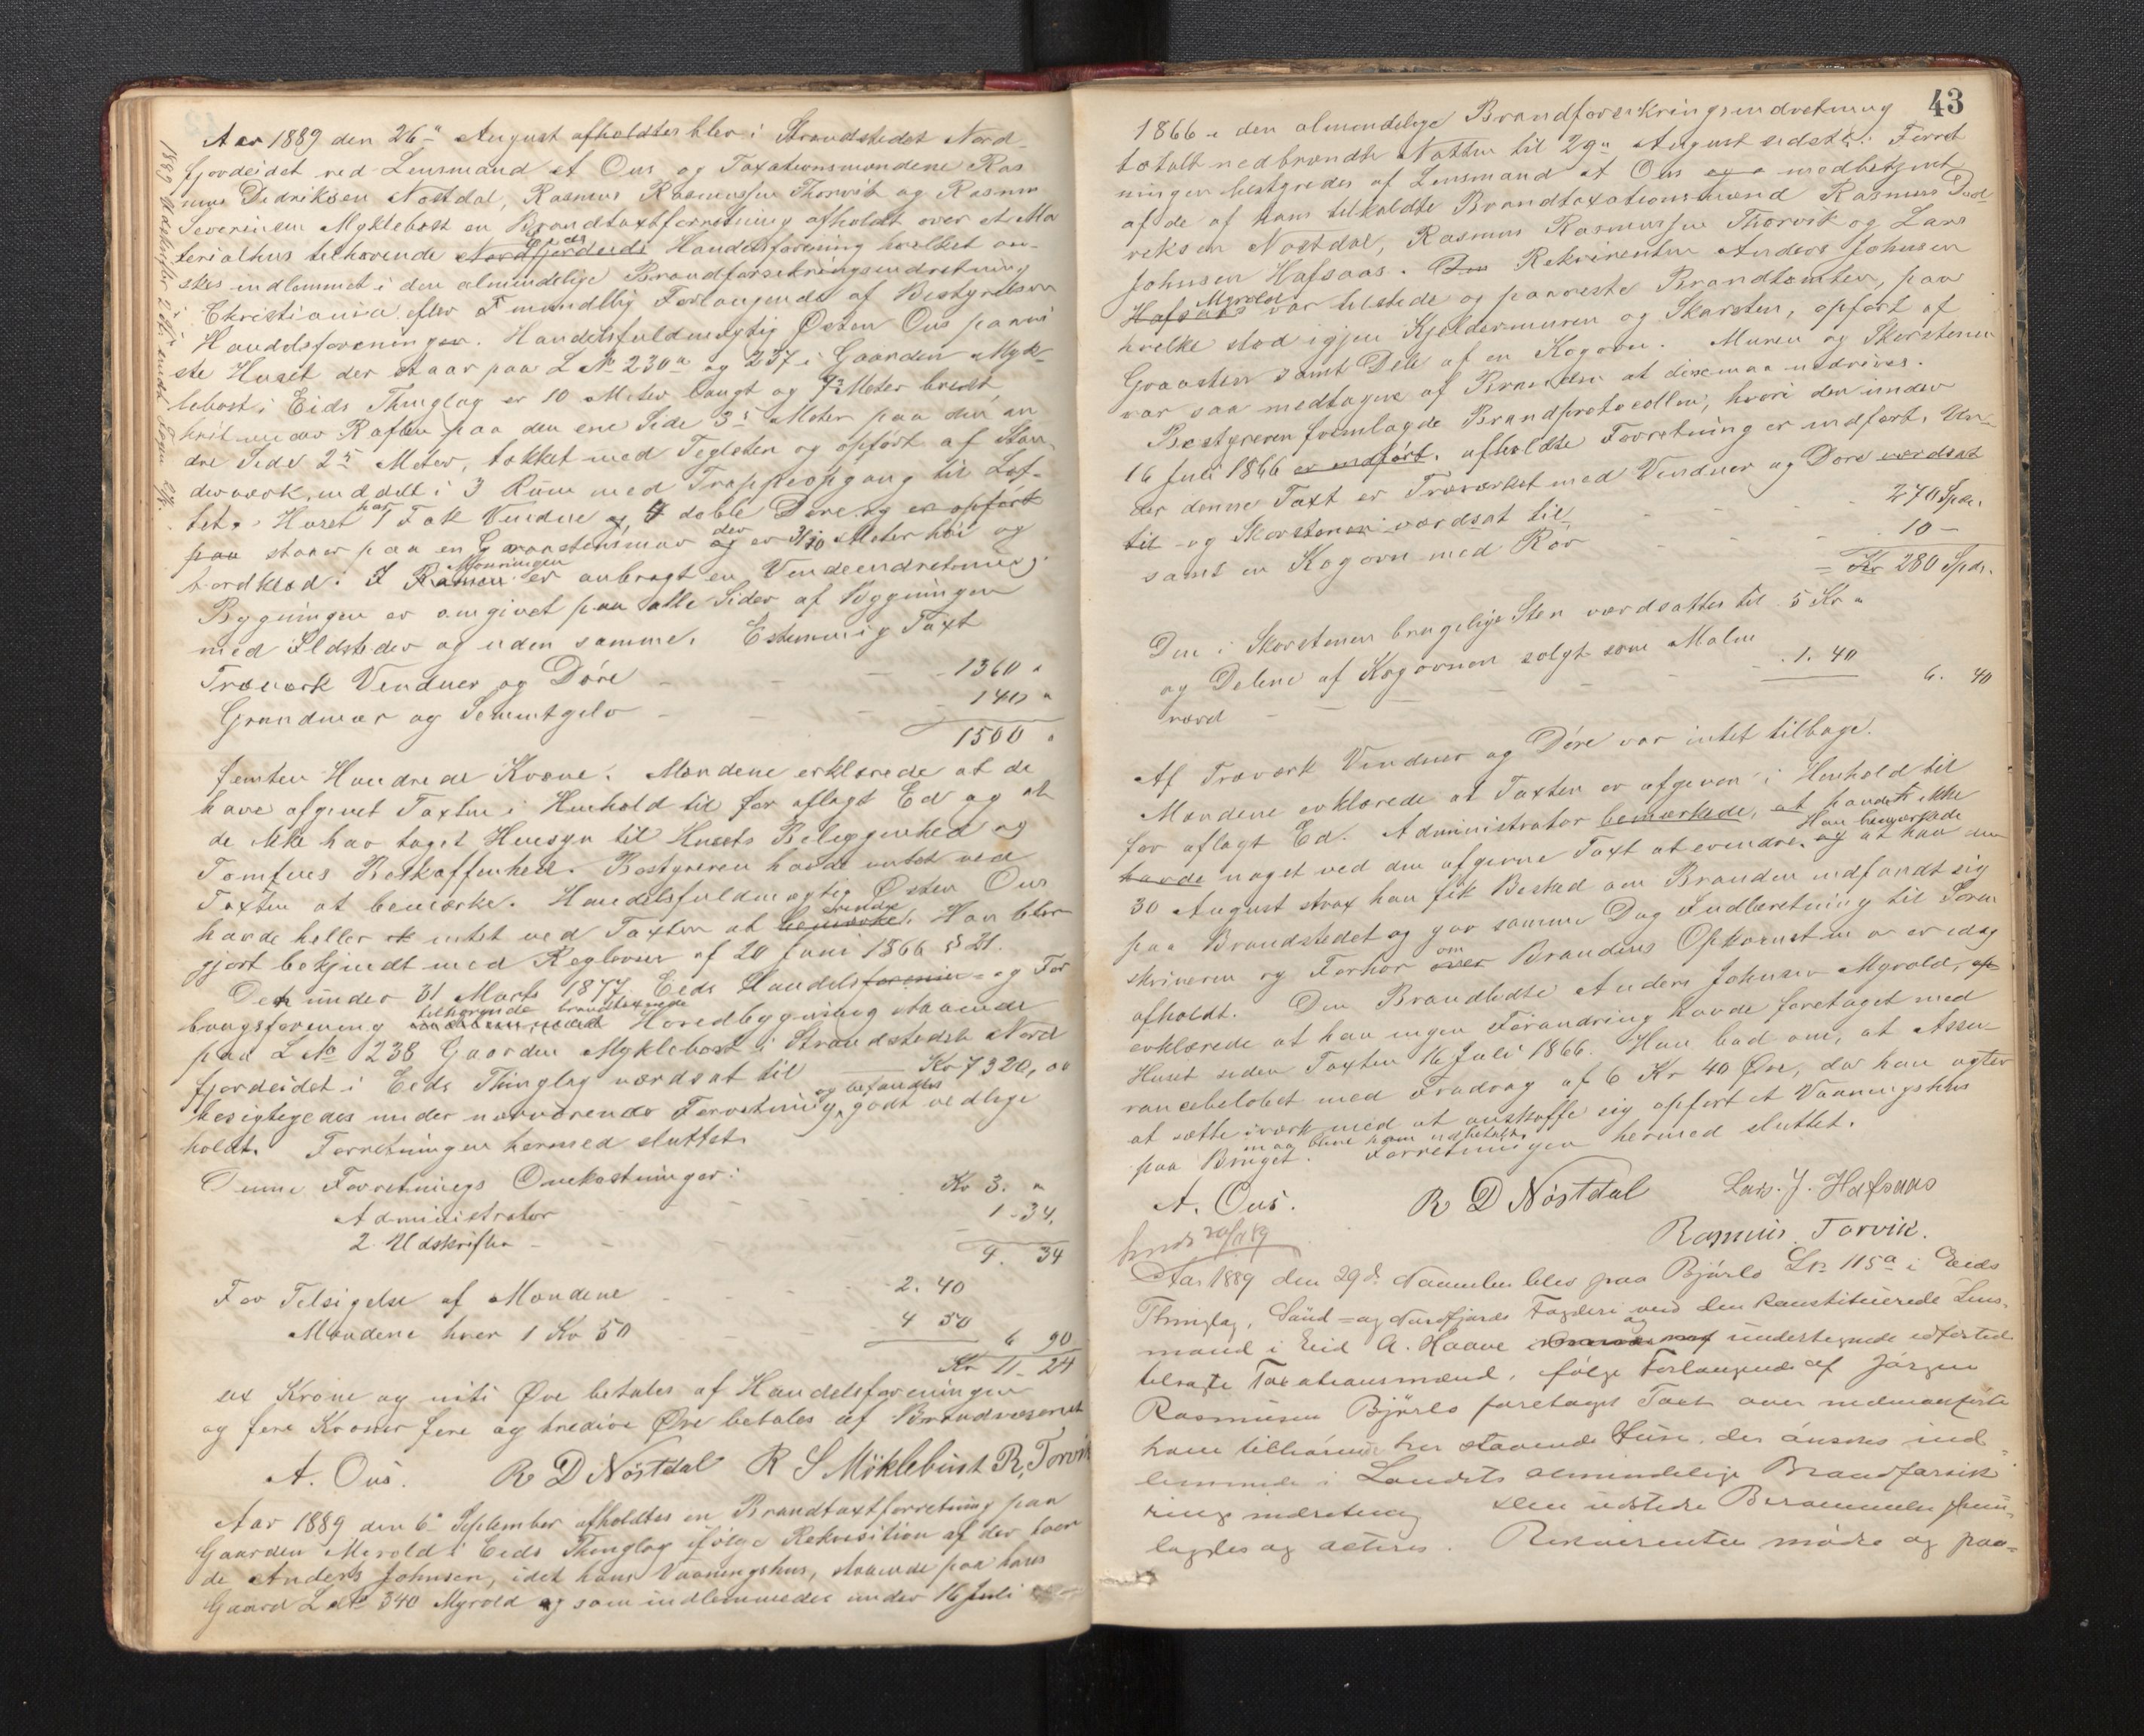 Aar 1889 den 26" August afholdtes blev i Strandstedet Nord-
fjordeidet ved Lensmand A Ous og Taxationsmændene Ras
mus Didriksen Nøstdal, Rasmus Rasmussen Thorvik og Rasmus
Severinsen Myklebost en Brandtaxtforretning afholdt over et Ma
terialhus tilhørende Eids Nordfjordeids Handelsforening hvilket øn-
skes indlemmet i den almindelige Brandforsikringsindretning
Christiania efter mundtlig Forlangende af Bestyrelsen
Handelsforeningen. Handelsfuldmægtig Østen Ous paavi
ste Huset der staar paa L No 230a og 237 i Gaarden Myk-
lebost i Eids Thinglag er 10 Meter langt og 7 Meter bredt,
høit under Raften paa den ene Side 3 5 Meter paa den an
dre Side 2 5 Meter, tækket med Teglsten og opført af Stan
derværk, inddelt i 3 Rum med Trappeopgang til Lof-
tet. Huset har Fak Vinduer og doble Døre og er opført
paa staaer paa en Graastensmur og der er Meter høi og
bordklæd. I Mønningen er anbragt en Vindeindretning.
Bygningen er omgivet paa alle Sider af Bygninger
med Ildsteder og uden samme. Taxt
Træværk Vinduer og Døre - - - 1360 "
Grundmur og Sementgulv - - - 140 "
1500 "
femten Hundrede Krone. Mændene erklærede at de
have afgivet Taxten i Henhold til før aflagt Ed og at
de ikke har taget Hensyn til Husets Beliggenhed og
Tomtens Beskaffenhed. Bestyreren havde intet ved
Taxten at bemærke. Handelsfuldmægtig Østen Ous
havde heller intet ved Taxten at bemærke. Han blev
gjort bekjendt med Reglerne af 20 Juni 1866 § 21.
Den under 31 Marts 1877 Eids Handelsforenin- og For
brugsforening tilhørende brandtaxerede Hovedbygning staaende
paa L No 238 Gaarden Myklebost i Strandstedet Nord
fjordeidet i Eids Thinglag værdsat til Kr 7320,00
besigtigedes under nærværende Forretning og befandtes godt vedlige
holdt. Forretningen hermed sluttet.
Denne Forretnings Omkostninger:
Administrator Kr 3. "
2 Udskrifter - 1-34.
4. 34
For Tilsigelse af Mændene - 2. 40
Mændene hver 1 Kr 50 4 50
6 90
Kr 11-24
sex Krone og niti Øre betales af Handelsforeningen
og fire Kroner fire og tredive Øre betales af Brandvæsenet
A. Ous. R D Nöstdal R S Möklebust R, Torvik
Aar 1889 den 6" September afholdtes en Brandtaxtforretning paa
Gaarden Myrold i Eids Thinglag ifølge Rekvisition af der boen
de Anders Johnsen, idet hans Vaaningshus, staaende paa hans
Gaard L No 340 Myrold og som indlemmedes under 16 Juli
43
1866 i den almindelige Brandforsikringsindretning
totalt nedbrændte Natten til 29" August sidst. Forret
ningen bestyredes af Lensmand A Ous og medbetjent
af de af ham tilkaldte Brandtaxationsmænd Rasmus Did
riksen Nøstdal, Rasmus Rasmussen Thorvik og Lars
Johnsen Hafsaas. Den Rekvirenten Anders Johnsen
Hafsaas Myrold var tilstede og paaviste Brandtomten, paa
hvilke stod igjen Kjeldermuren og Skorsten, opført af
Graasten samt Dele af en Kogovn. Muren og Skorstenen
var saa medtagne af Branden at disse maa nedrives.
Bestyreren fremlagde Brandprotocollen, hvori den under
16 Juli 1866 er indført. afholdte Forretning er indført. Un-
der denne Taxt er Træværket med Vinduer og Døre værdsat
til og Skorstenen værdsat til - - - 270 Spdr.
samt en Kogovn med Rør - - - 10 -
= Kr 280 Spdr.
Den i Skorstenen brugelige Sten værdsattes til 5 Kr "
og Delene af Kogovnen solgt som Malm
værd - - - 1. 40 6. 40
Af Træværk Vinduer og Døre var intet tilbage.
Mændene erklærede at Taxten er afgiven i Henhold til
før aflagt Ed. Administrator bemærkede, at havde ikke
havde noget ved den afgivne Taxt at erindre. og Han bemærkede at han den
30 August strax han fik Besked om Branden indfandt sig
paa Brandstedet og gav samme Dag Indberetning til Soren
skriveren og Forhør over om Brandens Opkomst er idag
afholdt. Den Brandlidte Anders Johnsen Myrold, op
erklærede at han ingen Forandring havde foretaget med
Huset siden Taxten 16 Juli 1866. Han bad om, at Assu-
rancebeløbet med Fradrag af 6 Kr 40 Øre, da han agter
at sætte iværk med at anskaffe sig opført et Vaaningshus
paa Bruget. maa blive ham udbetalt. Forretningen hermed sluttet.
A. Ous. R D Nöstdal Lars. J. Hafsaas
Rasmus. Torvik.
Aar 1889 den 29de November blev paa Bjørlo Lr 115a i Eids
Thinglag, Sünd- og Nordfjords Fogderi ved den konstituerede Lens-
mand i Eid A. Haave og undertegnede edfæsted
tilsagte Taxationsmænd, følge Forlangende af Jørgen
Rasmusen Bjørlo foretaget Taxt over nedenanførte
ham tilhørende her staaende Huse, der ønskes ind-
lemmede i Landets almindelige Brandforsik
rings indretning Den udstedte Berammelse frem-
lagdes og acteres. Rekvirenten mødte og paa-